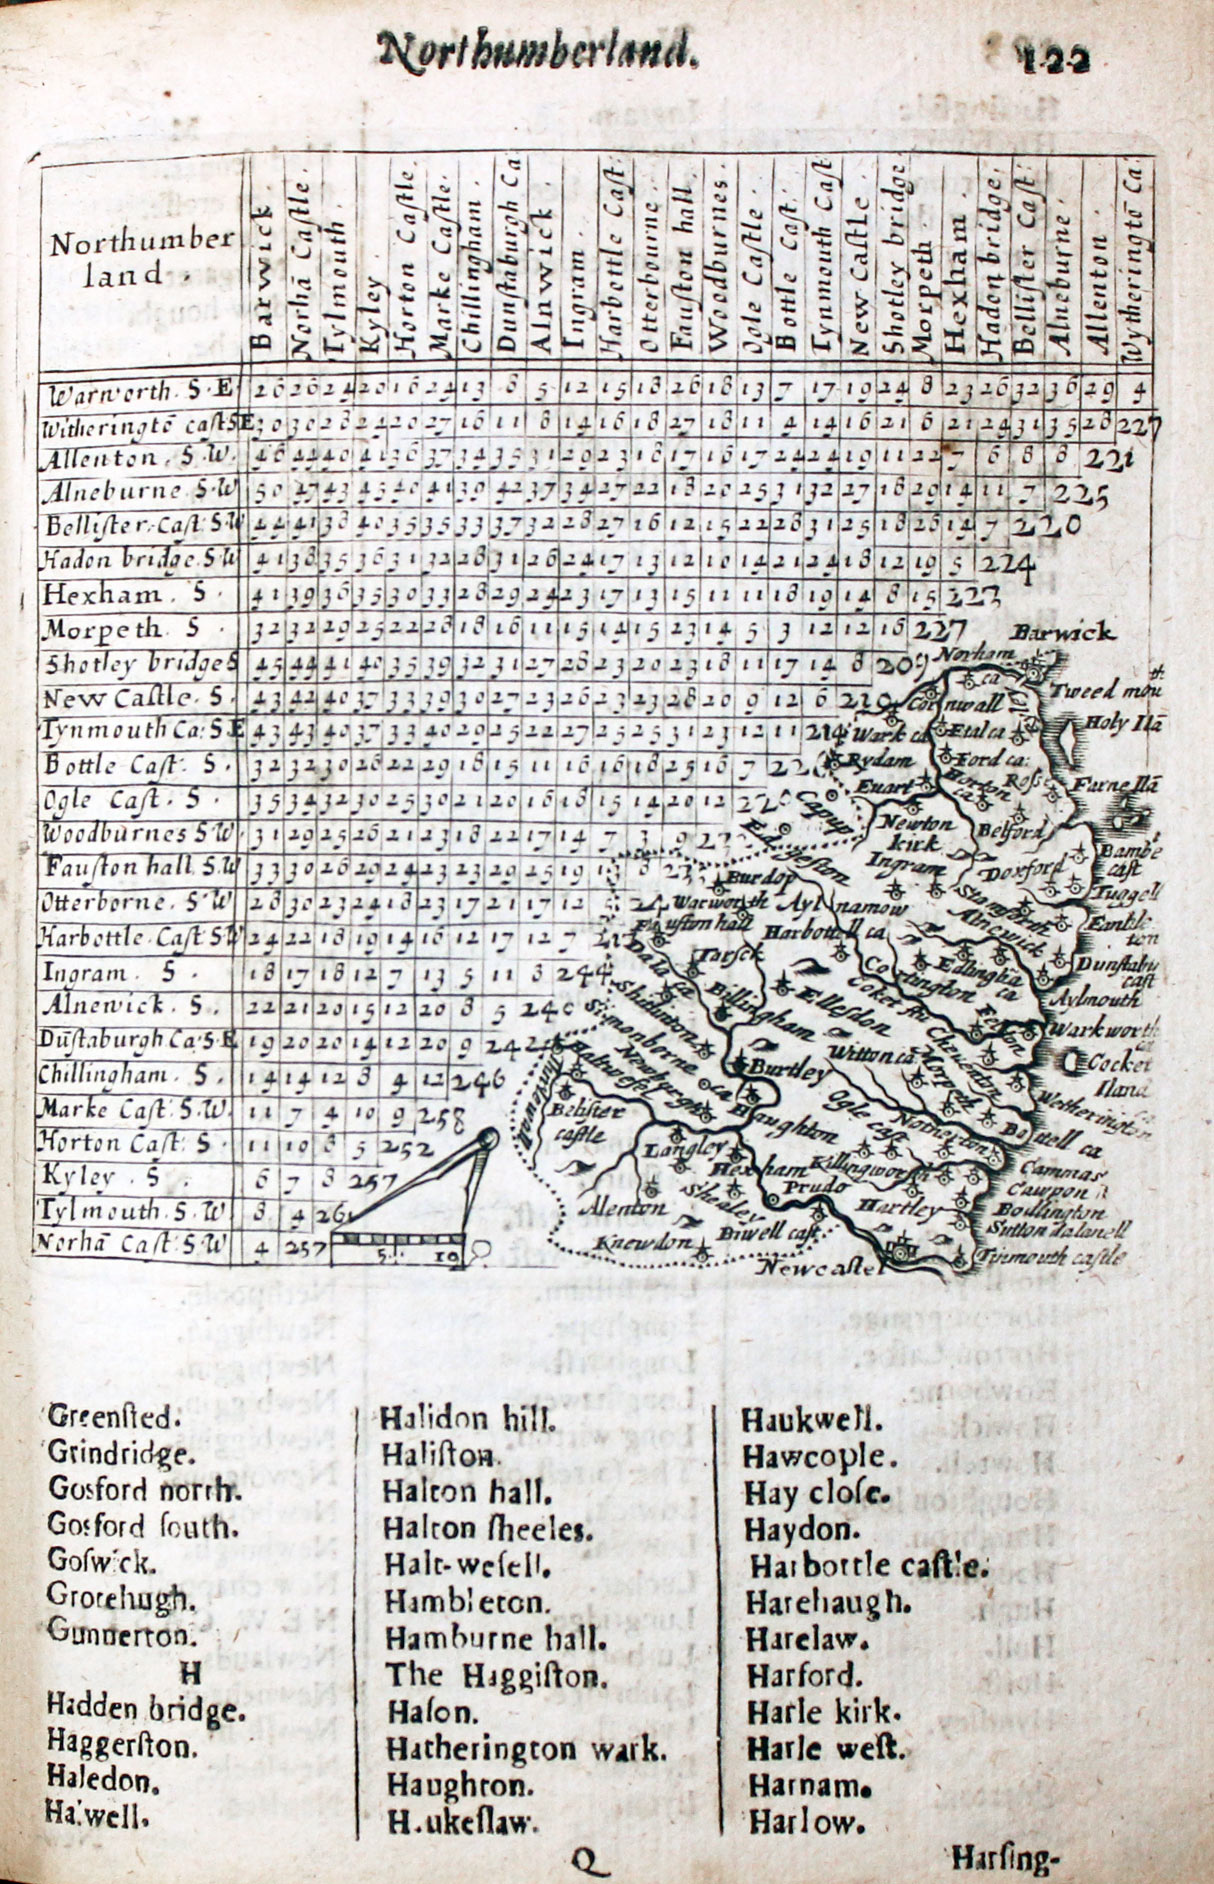 Northumberland.
122
Northumber
land
Barwick.
Norhã Caſtle.
Tylmouth.
Kyley.
Horton Caſtle.
Marke Caſtle.
Chillingham.
Dunſtaburgh Ca
Alnwick.
Ingram.
Harbottle Caſt:
Otterbourne.
Fauſton hall.
Woodburnes.
Ogle Caſtle.
Bottle Caſt.
Tynmouth Caſt
New Caſtle.
Shotley bridge
Morpeth.
Hexham.
Hadon bridge.
Belliſter Caſt:
Alneburne.
Allenton.
Wytheringtõ Ca:
Warworth. S. E. 26 26 24 20 16 24 13 8 5 12 15 18 26 18 13 7 17 19 24 8 23 26 32 36 29 4
Witheringtõ caſt S E 30 30 28 24 20 27 16 11 8 14 16 18 27 18 11 4 14 16 21 6 21 24 31 35 28 227
Allenton. S. W. 46 44 40 41 36 37 34 35 31 29 23 18 17 16 17 24 24 19 11 22 7 6 8 8 221
Alneburne. S. W 50 47 43 45 40 41 39 42 37 34 27 22 18 20 25 31 32 27 18 29 14 11 7 225
Belliſter. Caſt: S. W 44 41 38 40 35 35 33 37 32 28 27 16 12 15 22 28 31 25 18 26 14 7 220
Hadon bridge. S. W 41 38 35 36 31 32 28 31 26 24 17 13 12 10 14 21 24 18 12 19 5 224
Hexham. S. 41 39 36 35 30 33 28 29 24 23 17 13 15 11 11 18 19 14 8 15 223
Morpeth. S. 32 32 29 25 22 28 18 16 11 15 14 15 23 14 5 3 12 12 16 227
Shotley bridge S 45 44 41 40 35 39 32 31 27 28 23 20 23 18 11 17 14 8 209
New Caſtle. S. 43 42 40 37 33 39 30 27 23 26 23 23 28 20 9 12 6 210
Tynmouth Ca: S. E 43 43 40 37 33 40 29 25 22 27 25 25 31 23 12 11 214
Bottle Caſt. S. 32 32 30 26 22 29 18 15 11 16 16 18 25 16 7 226
Ogle Caſt. S. 35 34 32 30 25 30 21 20 16 18 15 14 20 12 220
Woodburnes S W. 31 29 25 26 21 23 18 22 17 14 7 3 9
Fauſton hall. S. W 33 30 26 29 24 23 23 29 25 19 13 8
Otterborne. S. W 28 30 23 24 18 23 17 21 17 12 5
Harbottle. Caſt: S W 24 22 18 19 14 16 12 17 12 7
Ingram. S. 18 17 18 12 7 13 5 11 8 244
Alnewick. S. 22 21 20 15 12 20 8 5 240
Dũſtaburgh Ca: S. E. 19 20 20 14 12 20 9 242
Chillingham. S. 14 14 12 8 4 12 246
Marke Caſt: S. W. 11 7 4 10 9 258
Horton Caſt: S. 11 10 8 5 252
Kyley. S. 6 7 8 257
Tylmouth. S. W. 8 4 261
Norhã Caſt: S. W 4 257
5 10
Barwick
Norham
ca
Tweed mouth
Cornwall
Holy Ilã
Wark ca
Etal ca
Rydam
Ford ca:
Horton
ca
Roſſe
Farne Ilã
Euart
Capup
Newton
kirk
Belford
Ingram
Doxford
Bambe
caſt
Tuggell
Burdop
Warworth
Aylnamow
Stamfort
Alnewick
Embleton
Fauſton hall
Harbottell ca
Dunſtabu
caſt
Tarſek
Edlinghã
ca
Cartington
Aylmouth
Billingham
Ellesdon
Felton
Warkworth
ca
Shilinton
Simonborne
Witton ca
Cheuenton
Morpeth
Cocket
Iland
Haltwesel
Newburgh
Burtley
Wetherington
Belister
caſtle
Haughton
Ogle caſt
Notherton
Bottell ca
Langley
Hexham
Killingworth
Cammas
Cawpon
Prudo
Hartley
Bodlington
Alenton
Shealey
Sutton dalauell
Knewdon
Biwell caſt
Tinmouth caſtle
Newcaſtel
Greenſted.
Grindridge.
Gosford north.
Gosford ſouth.
Goſwick.
Grotehugh.
Gunnerton.
H
Hadden bridge.
Haggerſton.
Haledon.
Halwell.
Halidon hill.
Haliſton.
Halton hall.
Halton ſheeles.
Halt-weſell.
Hambleton.
Hamburne hall.
The Haggiſton.
Haſon.
Hatherington wark.
Haughton.
Haukeſlaw.
Haukwell.
Hawcople.
Hay cloſe.
Haydon.
Harbottle caſtle.
Harehaugh.
Harelaw.
Harford.
Harle kirk.
Harle weſt.
Harnam.
Harlow.
Q
Harſing-